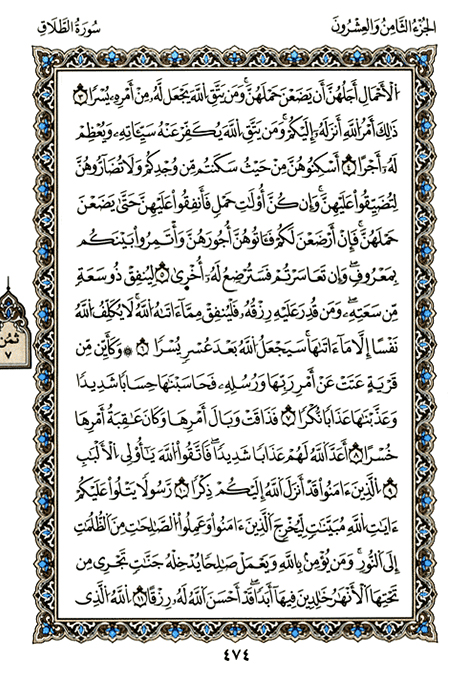 الجُزْءُ الثَّامِنُ وَالعِشْرُونَ
سُورَةُ الطَّلَاقِ
اَلَاحْمَالِ أَجَلُهُنَّ أَنْ يَّضَعْنَ حَمْلَهُنَّ وَمَنْ يَّتَّقِ اِللَّهَ يَجْعَل لَّهُۥ مِنَ اَمْرِهِۦ يُسْرًا ٣
ذَٰلِكَ أَمْرُ اُللَّهِ أَنزَلَهُۥ إِلَيْكُمْ وَمَنْ يَّتَّقِ اِللَّهَ يُكَفِّرْ عَنْهُ سَيِّـَٔاتِهِۦ وَيُعْظِمْ
لَهُۥ أَجْرًا ٤ اَسْكِنُوهُنَّ مِنْ حَيْثُ سَكَنتُم مِّنْ وُّجْدِكُمْ وَلَا تُضَآرُّوهُنَّ
لِتُضَيِّقُواْ عَلَيْهِنَّ وَإِن كُنَّ أُوْلَٰتِ حَمْلٖ فَأَنفِقُواْ عَلَيْهِنَّ حَتَّىٰ يَضَعْنَ
حَمْلَهُنَّ فَإِنَ اَرْضَعْنَ لَكُمْ فَـَٔاتُوهُنَّ أُجُورَهُنَّ وَأْتَمِرُواْ بَيْنَكُم
بِمَعْرُوفٖ وَإِن تَعَاسَرْتُمْ فَسَتُرْضِعُ لَهُۥ أُخْرَىٰ ٥ لِيُنفِقْ ذُو سَعَةٖ
مِّن سَعَتِهِۦ وَمَن قُدِرَ عَلَيْهِ رِزْقُهُۥ فَلْيُنفِقْ مِمَّآ ءَاتَىٰهُ اُللَّهُ لَا يُكَلِّفُ اُللَّهُ
نَفْسًا اِلَّا مَآ ءَاتَىٰهَا سَيَجْعَلُ اُللَّهُ بَعْدَ عُسْرٖ يُسْرًا ٦ ۞ وَكَأَيِّن مِّن
قَرْيَةٍ عَتَتْ عَنَ اَمْرِ رَبِّهَا وَرُسُلِهِۦ فَحَاسَبْنَٰهَا حِسَابًا شَدِيدًا
وَعَذَّبْنَٰهَا عَذَابًا نُّكُرًا ٧ فَذَاقَتْ وَبَالَ أَمْرِهَا وَكَانَ عَٰقِبَةُ أَمْرِهَا
خُسْرًا ٨ اَعَدَّ اَللَّهُ لَهُمْ عَذَابًا شَدِيدًا فَاتَّقُواْ اُللَّهَ يَٰٓأُوْلِي اِلَالْبَٰبِ
٩ اِلذِينَ ءَامَنُواْ قَدَ اَنزَلَ اَللَّهُ إِلَيْكُمْ ذِكْرًا ١٠ رَّسُولًا يَتْلُواْ عَلَيْكُمُ
ءَايَٰتِ اِللَّهِ مُبَيَّنَٰتٖ لِّيُخْرِجَ اَلذِينَ ءَامَنُواْ وَعَمِلُواْ اُلصَّٰلِحَٰتِ مِنَ اَلظُّلُمَٰتِ
إِلَى اَلنُّورِ وَمَنْ يُّومِنۢ بِاللَّهِ وَيَعْمَلْ صَٰلِحًا نُدْخِلْهُ جَنَّٰتٖ تَجْرِي مِن
تَحْتِهَا اَلَانْهَٰرُ خَٰلِدِينَ فِيهَآ أَبَدًا قَدَ اَحْسَنَ اَللَّهُ لَهُۥ رِزْقًا ١١ اِللَّهُ اُلذِي
ثُمُن
٧
٤٧٤